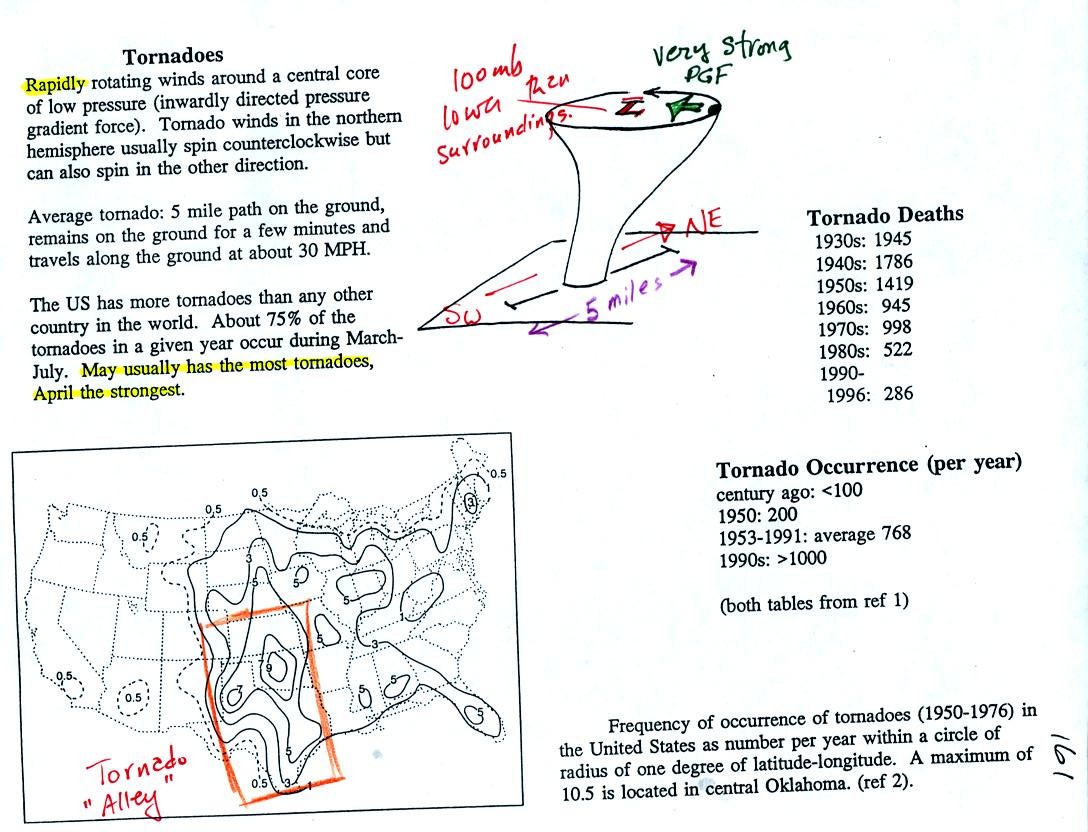 Tornadoes
Rapidly rotating winds around a central core
of low pressure (inwardly directed pressure
gradient force). Tornado winds in the northern
hemisphere usually spin counterclockwise but
can also spin in the other direction.
Average tornado: 5 mile path on the ground,
remains on the ground for a few minutes and
travels along the ground at about 30 MPH.
The US has more tornadoes than any other
country in the world. About 75% of the
tornadoes in a given year occur during March-
July. May usually has the most tornadoes,
April the strongest.
100mb
lower than
surroundings.
L
very strong
PGF
NE
SW
5 miles
Tornado Deaths
1930s: 1945
1940s: 1786
1950s: 1419
1960s: 945
1970s: 998
1980s: 522
1990-
1996: 286
Tornado Occurrence (per year)
century ago: <100
1950: 200
1953-1991: average 768
1990s: >1000
(both tables from ref 1)
0.5
0.5
0.5
1
3
0.5
3
5
5
5
5
3
9
7
0.5
0.5
5
5
5
5
0.5
3
1
Tornado
"Alley"
Frequency of occurrence of tornadoes (1950-1976) in
the United States as number per year within a circle of
radius of one degree of latitude-longitude. A maximum of
10.5 is located in central Oklahoma. (ref 2).
161